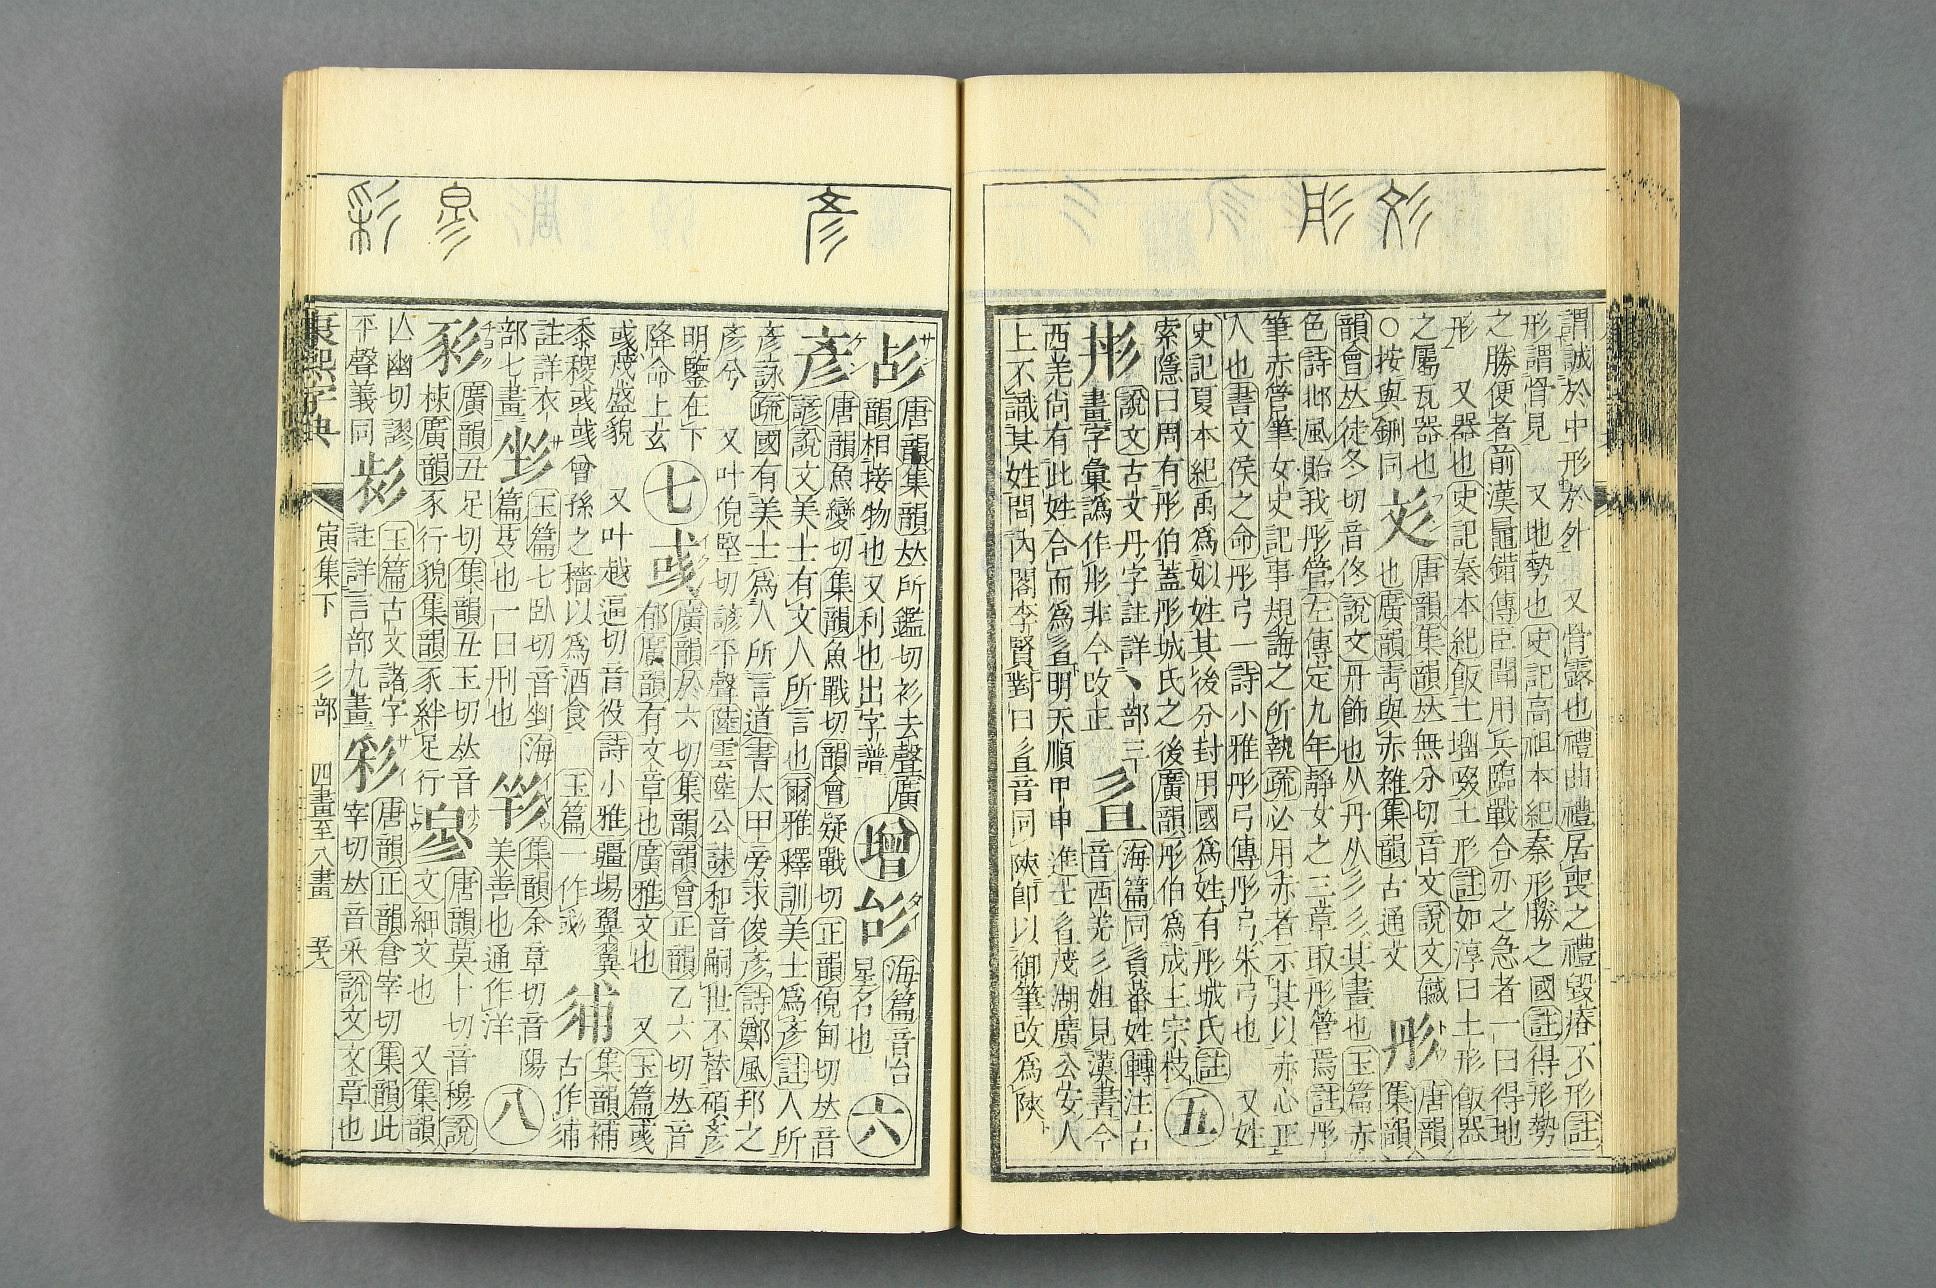 彣 彤
謂誠於中形於外 又骨露也禮曲禮居喪之禮毀瘠不形註
形謂骨見 又地勢也史記高祖本紀秦形勝之國註得形勢
之勝便者前漢鼂錯傳臣聞用兵臨戰合刃之急者一曰得地
形 又器也史記秦本紀飯土塯啜土形註如淳曰土形飯器
之屬瓦器也 彣 唐韻集韻𠀤無分切音文說文𢒰
○按與鉶同 也廣韻靑與赤雜集韻古通文 彤 唐韻集韻
韻會𠀤徒冬切音佟說文丹飾也从丹从彡彡其畫也玉篇赤
色詩邶風貽我彤管左傳定九年靜女之三章取彤管焉註彤
筆赤管筆女史記事規誨之所執疏必用赤者示其以赤心正
人也書文侯之命彤弓一詩小雅彤弓傳彤弓朱弓也 又姓
史記夏本紀禹爲姒姓其後分封用國爲姓有彤城氏註 五
索隱曰周有彤伯蓋彤城氏之後廣韻彤伯爲成王宗枝
說文古文丹字註詳丶部三
畫字彙譌作彤非今改正 海篇同 蕃姓轉注古
音西羌 姐見漢書今
西羌尚有此姓合而爲 明天順甲申進士 茂湖廣公安人
上不識其姓問內閣李賢對曰 音同陝卽以御筆改爲陝
彥 㣎 彩
唐韻集韻𠀤所鑑切衫去聲廣
韻相接物也又利也出字譜 增 海篇音台
星名也 六
彥 唐韻魚變切集韻魚戰切韻會疑戰切正韻倪甸切𠀤音
諺說文美士有文人所言也爾雅釋訓美士爲彥註人所
彥詠疏國有美士爲人所言道書太甲旁求俊彥詩鄭風邦之
彥兮 又叶倪堅切諺平聲陸雲陸公誄和音嗣世不替碩彥
明鑒在下
降命上玄 七 彧 廣韻於六切集韻韻會正韻乙六切𠀤音
郁廣韻有文章也廣雅文也 又玉篇彧
彧茂盛貌 又叶越逼切音役詩小雅疆場翼翼
黍稷彧彧曾孫之穡以爲酒食 玉篇一作戫 集韻補
古作
註詳衣
部七畫 玉篇七臥切音剉海
篇芟也一曰刑也 集韻余章切音陽
美善也通作洋 八
廣韻丑足切集韻丑玉切𠀤音
棟廣韻豕行貌集韻豕絆足行 㣎 唐韻莫卜切音穆說
文細文也 又集韻
亾幽切謬
平聲義同 玉篇古文諸字
註詳言部九畫 彩 唐韻正韻倉宰切集韻此
宰切𠀤音采說文文章也
康熙字典 寅集下 彡部 四畫至八畫